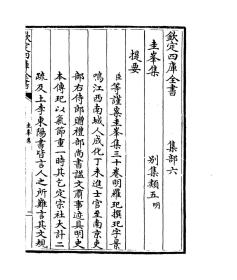 欽定四庫全書
集部六
圭峯集
別集類五明
提要
臣等謹案圭峯集三十卷明羅玘撰玘字景
鳴江西南城人成化丁未進士官至南京吏
部右侍郎贈禮部尚書諡文肅事迹具明史
本傳玘以氣節重一時其乞定宗社大計二
疏及上李東陽書皆言人之所難言其文規
欽定四庫全書
圭峯集